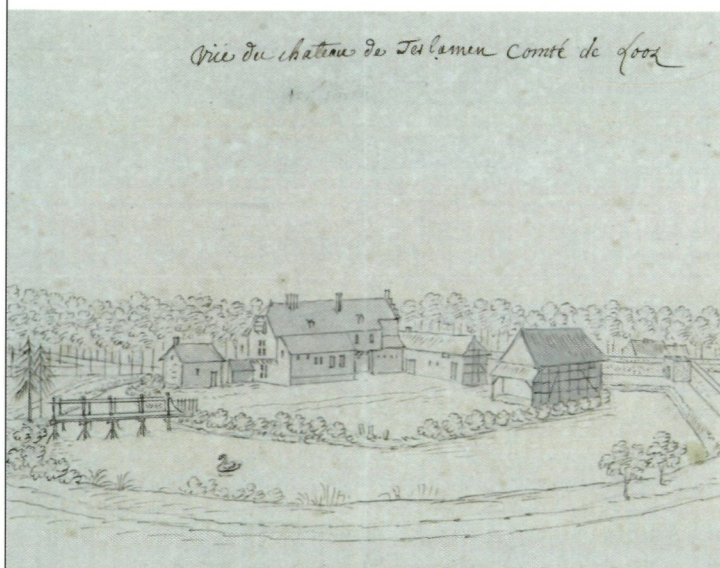 Vüe du chateau de Terlamen Comté de Looz